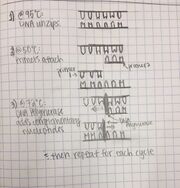 1) @95°C
DNA unzips
2) @50°C:
primers attach
primer 2
primer
3) @72°C
DNA polymerase
adds complementary
nucleotides
DNA
polymerase
then repeat for each cycle